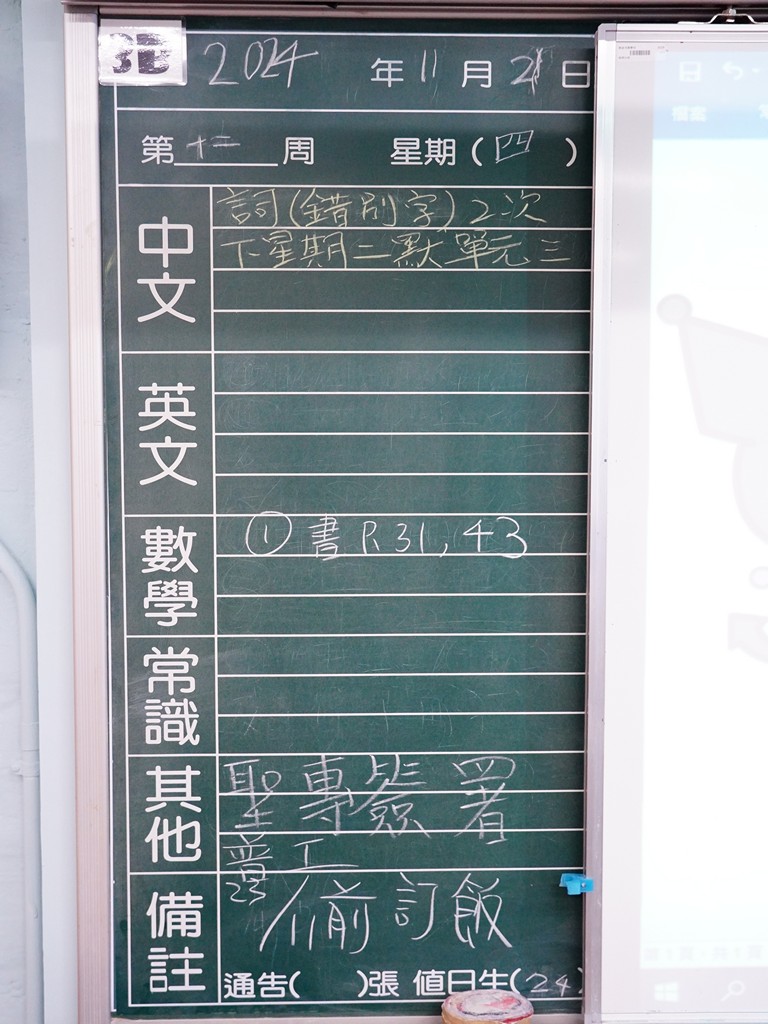 3B
2024 年 11 月 21 日
第 十二 周 星期 ( 四 )
中文 詞(錯別字)2次
下星期二默單元三
英文
數學 ① 書 P.31, 43
常識
其他 聖專簽署
普工
備註 23/11前訂飯
通告( )張 值日生(24)
檔案